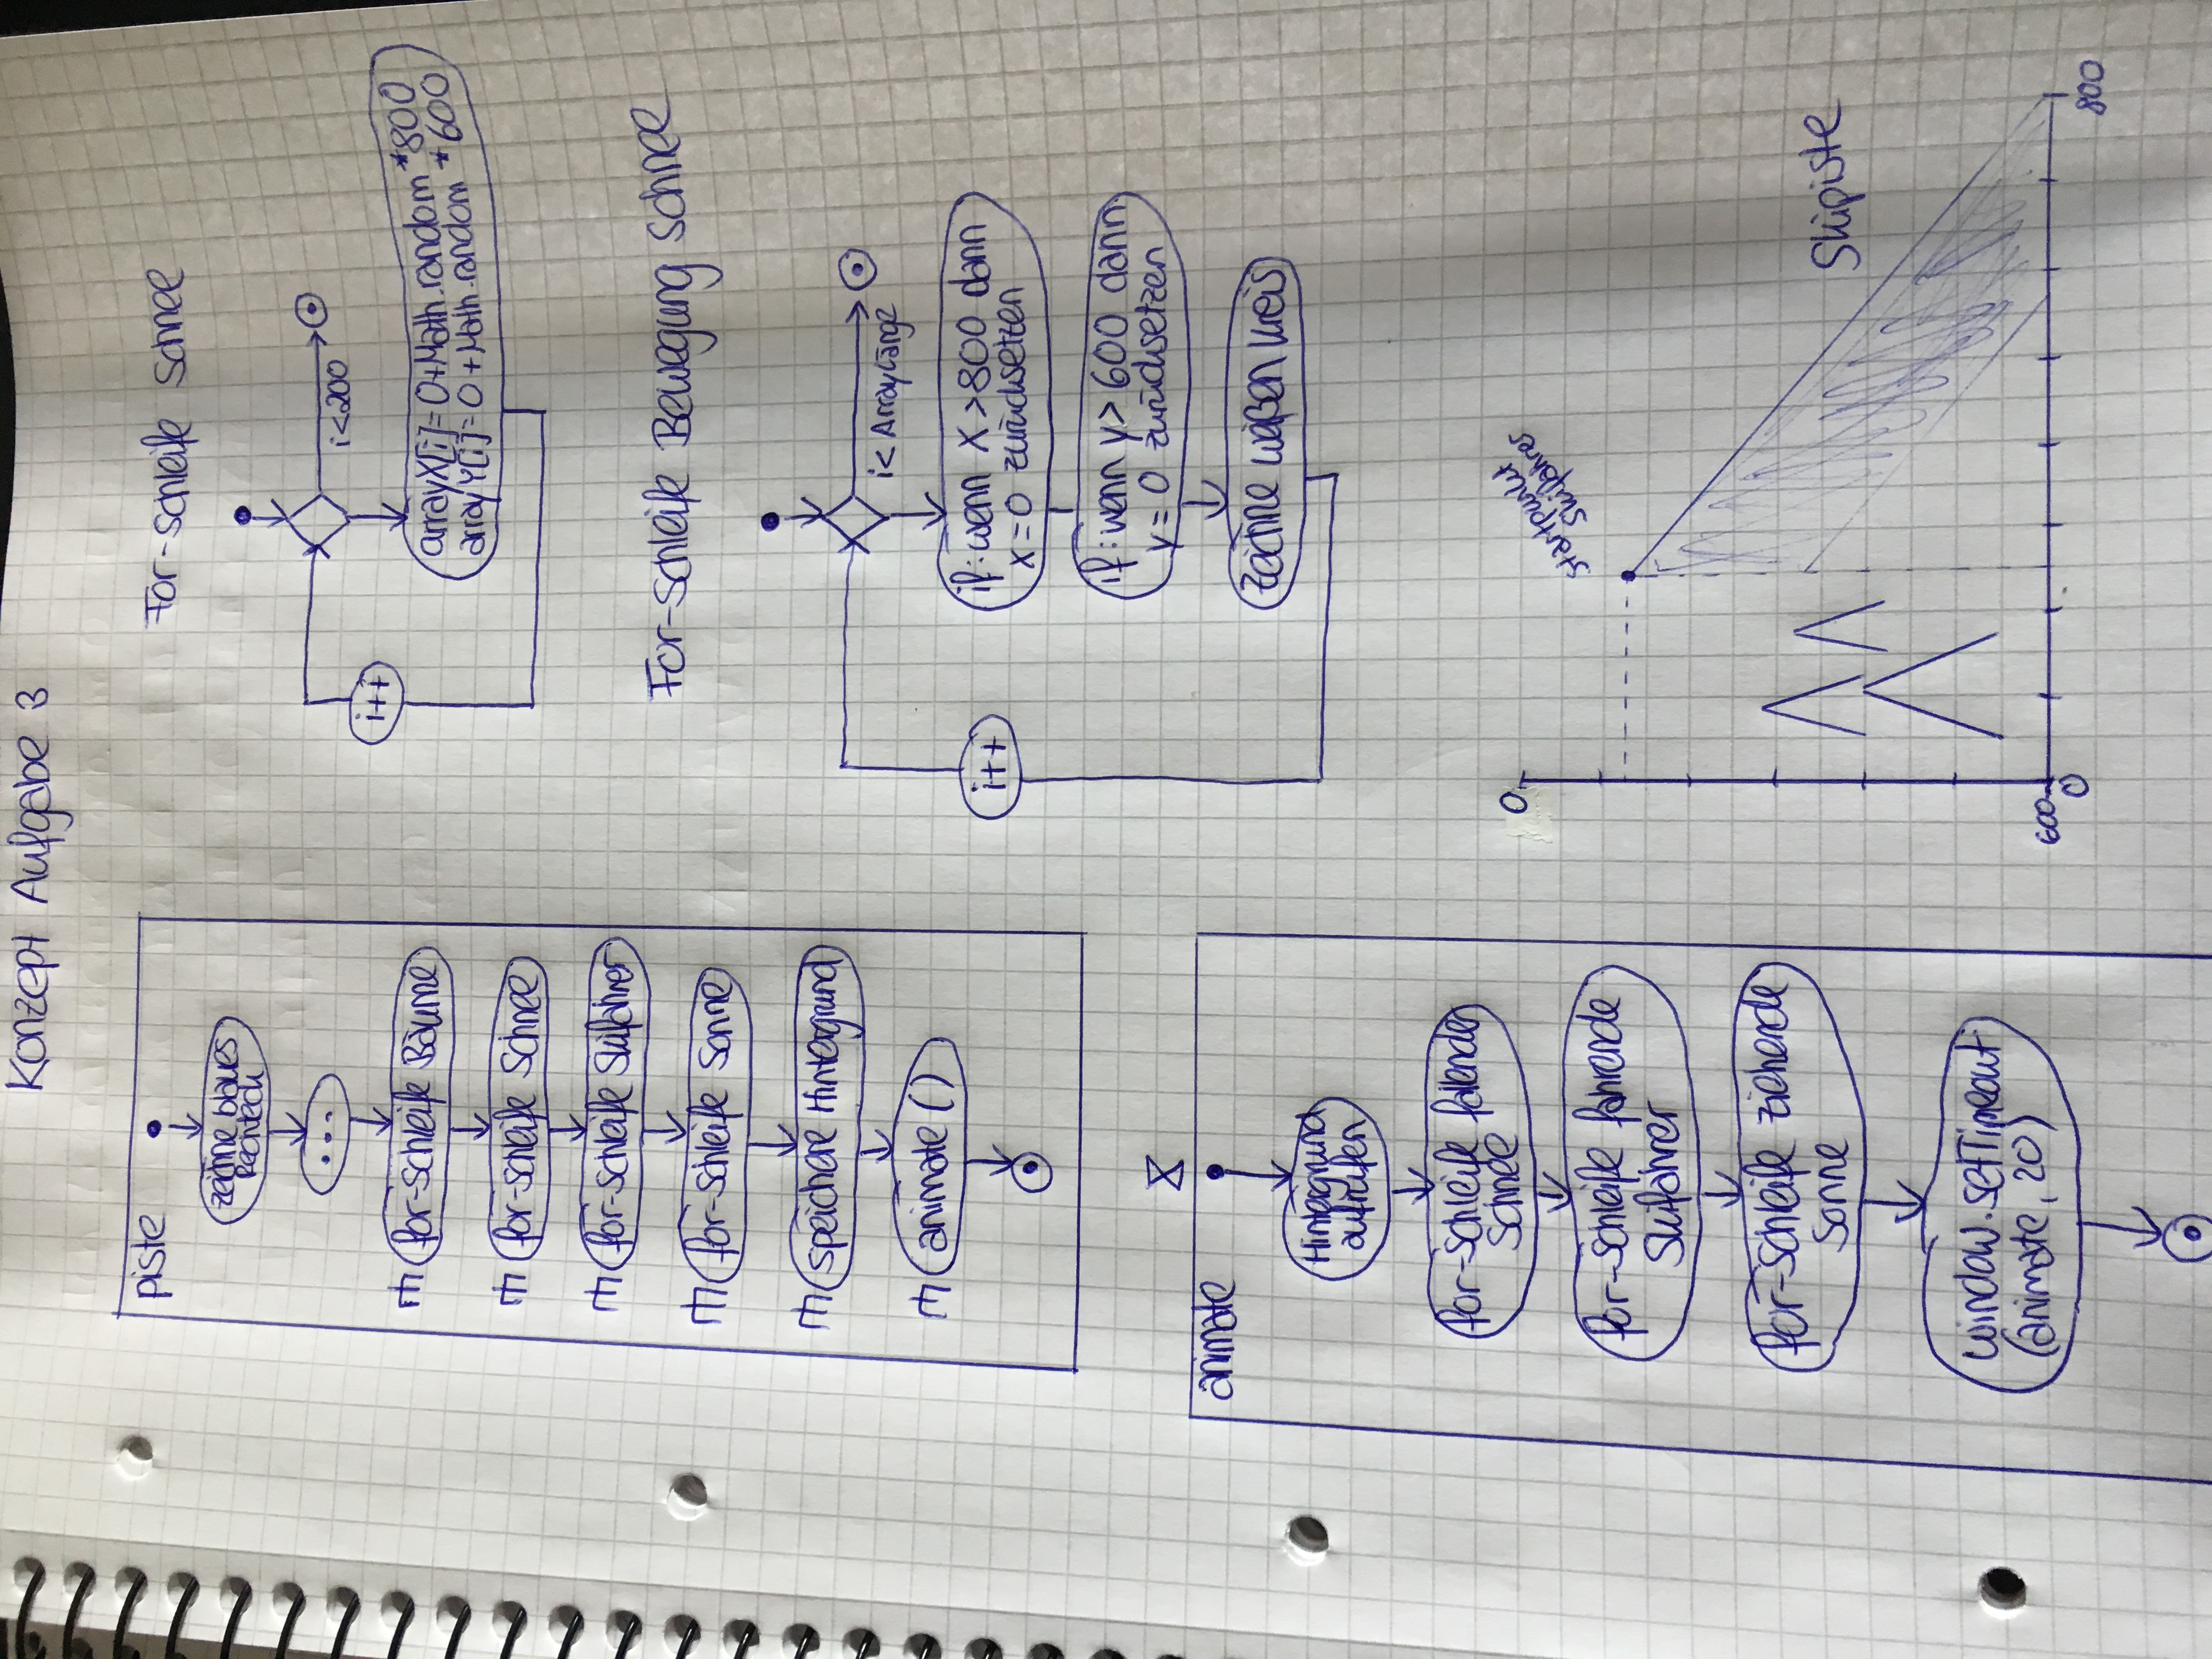 Konzept Aufgabe 3
piste
zeichne blaues
Rechteck
...
for-schleife Bäume
for-schleife Schnee
for-schleife Skifahrer
for-schleife Sonne
speichere Hintergrund
animate ()
animate
Hintergrund
aufrufen
for-schleife fallender
Schnee
for-schleife fahrende
Skifahrer
for-schleife ziehende
Sonne
window.setTimeout
(animate, 20)
For-schleife Schnee
i<200
i++
arrayX[i]=0+Math.random *800
arrayY[i]=0+Math.random *600
For-schleife Bewegung Schnee
i< Arraylänge
i++
if: wenn x >800 dann
x=0 zurücksetzen
if: wenn y> 600 dann
y= 0 zurücksetzen
zeichne weißen Kreis
0
Startpunkt
Skifahrer
Skipiste
600
0
800